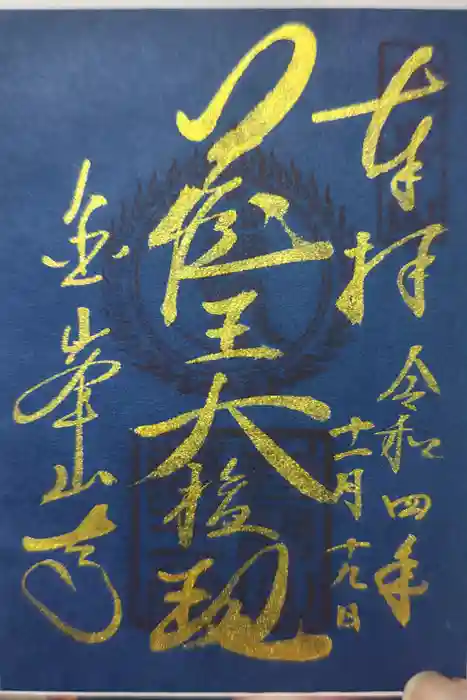 奉拝
令和四年
十一月十九日
蔵王大権現
金峯山寺